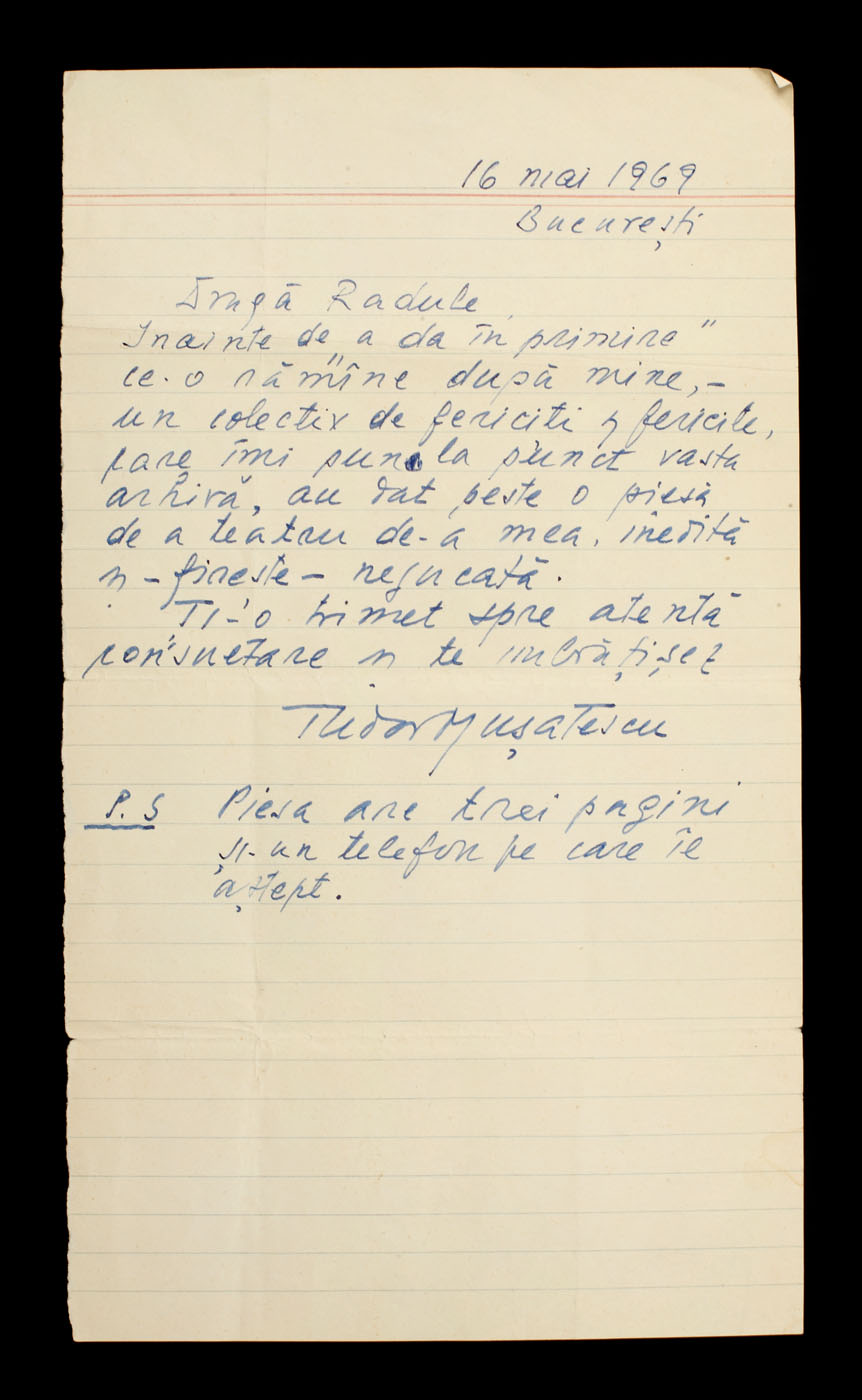 16 mai 1969
București
Dragă Radule,
Inainte de a da în primire"
ce-o rămîne după mine, -
un colectiv de fericiti și fericite,
care îmi pune la punct vasta
arhivă, au dat peste o piesă
de a teatru de-a mea, inedită
și - firește - nejucată.
Ti-o trimet spre atentă
și te îmbrățișez
Tudor Mușatescu
P.S Piesa are trei pagini
și-un telefon pe care îl
aștept.